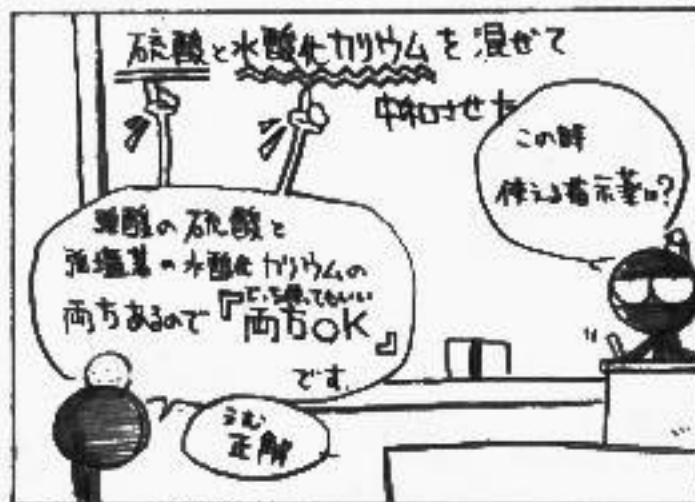 硫酸と水酸化カリウムを混ぜて
中和させた
この時
使える指示薬は?
強酸の硫酸と
強塩基の水酸化カリウムの
両方あるので『両方OK』
どっち使ってもいい
です。
うむ
正解